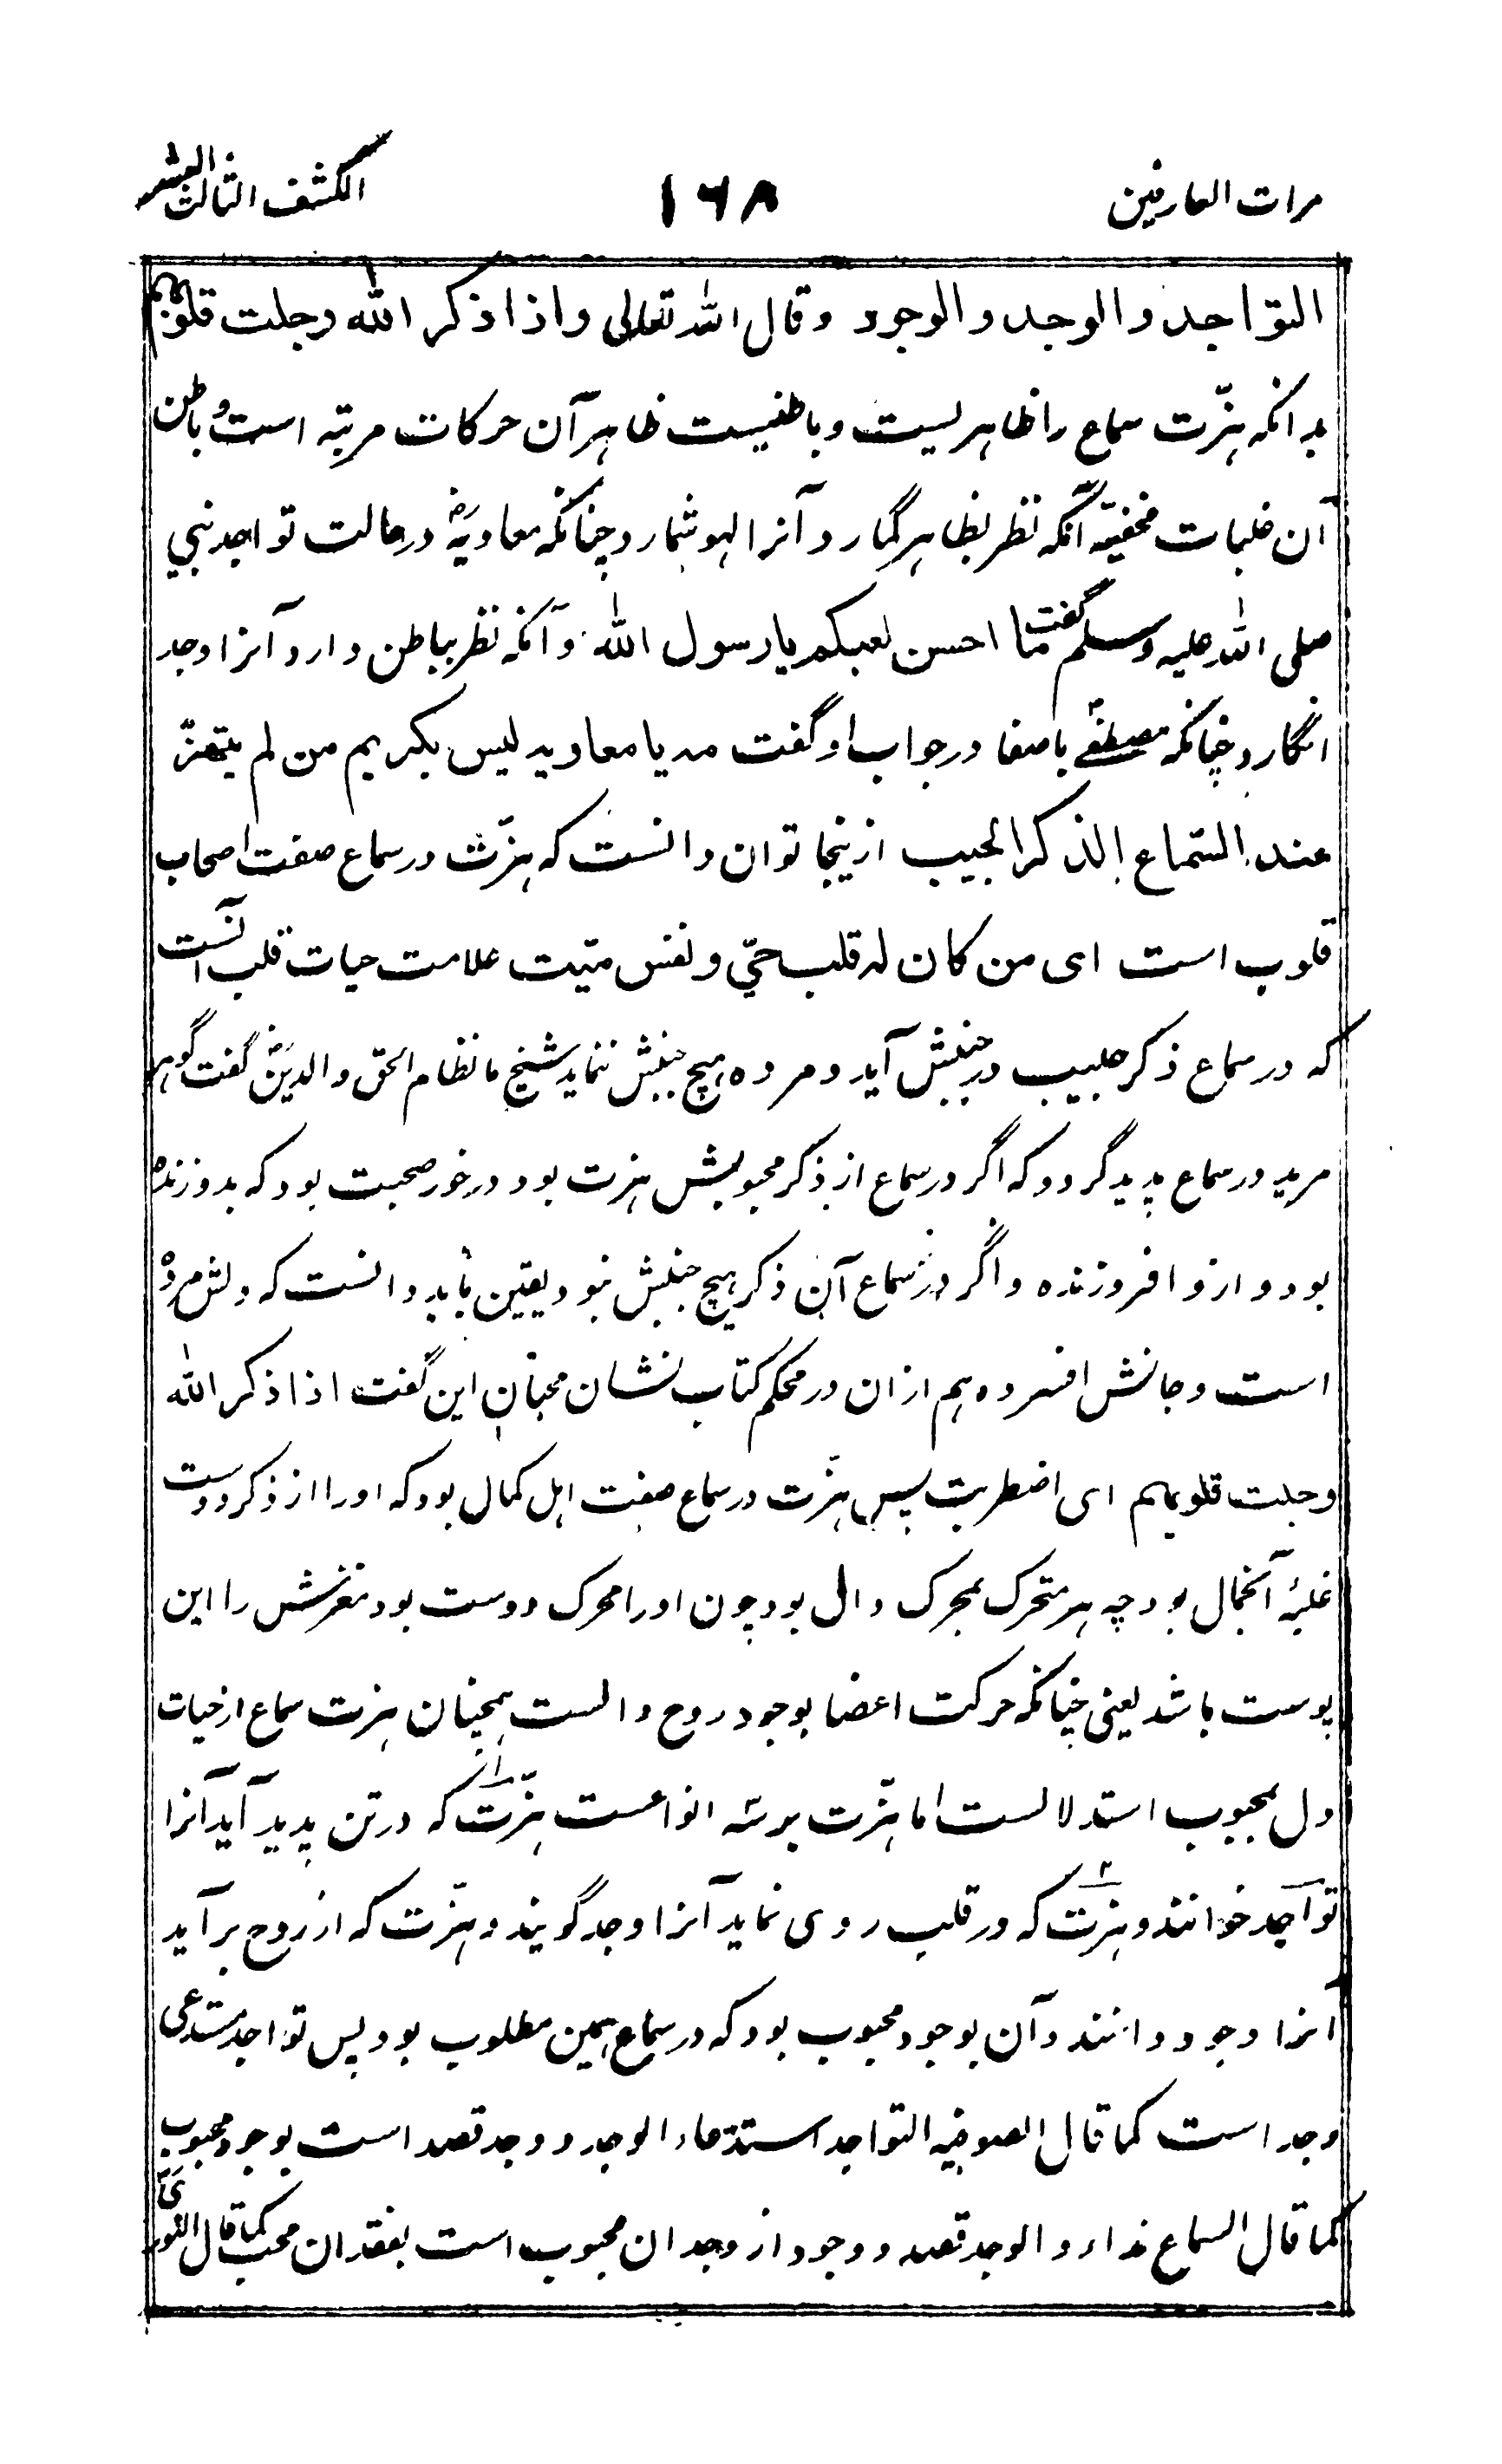 مرات العارفین ١٦٨ الکشف الثالث العشر
التواجد و الوجد و الوجود و قال الله تعالی و اذا ذکر الله وجلت قلوبهم
بدانکه هزّت سماع را ظاهریست و باطنیست ظاهر آن حرکات مرتبه است و باطن
آن غلبات مخفیّه آنکه نظر بظاهر گمارد آنرا لهو شمارد چنانکه معاویهؓ در حالت تواجد نبی
صلی الله علیه وسلم گفت ما احسن لعبکم یا رسول الله و آنکه نظر بباطن دارد آنرا وجد
انگارد چنانکه مصطفےٰ باصفا در جواب او گفت مه یا معاویه لیس بکریم من لم یتهزّ
عند السّماع الذکر الحبیب ازینجا توان دانست که هزّت در سماع صفت اصحاب
قلوب است ای من کان له قلب حیّ و نفس میّت علامت حیات قلب آنست
که در سماع ذکر حبیب در جنبش آید و مرده هیچ جنبش ننماید شیخ ما نظام الحق و الدینؓ گفت گوهر
مرید در سماع پدید گردد که اگر در سماع از ذکر محبوبش هزت بود در خور صحبت بود که بدو زنده
بود و ازو افروزنده و اگر در سماع آن ذکر هیچ جنبش نبود یقین باید دانست که دلش مرده
است و جانش افسرده هم ازان در محکم کتاب نشان محبّان این گفت اذا ذکر الله
وجلت قلوبهم ای اضطربت پس هزّت در سماع صفت اهل کمال بود که او را از ذکر دوست
غلبهٔ آنحال بود چه هر متحرک بمحرک دال بود چون او را محرک دوست بود مغزش را این
پوست باشد یعنی چنانکه حرکت اعضا بوجود روح دالست همچنان هزت سماع از حیات
دل بمحبوب استدلالست اما هزّت بر سه انواعست هزّت که در تن پدید آید آنرا
تواجد خوانند و هزت که در قلب روی نماید آنرا وجد گویند و هزّت که از روح برآید
آنرا وجود دانند و آن بوجود محبوب بود که در سماع همین مطلوب بود پس تواجد مستدعی
وجد است کما قال الصوفیه التواجد استدعاء الوجد و وجد قصد است بوجود محبوب
کما قال السماع نداء و الوجد قصد و وجود از وجدان محبوب است بفقدان محب کما قال النوری